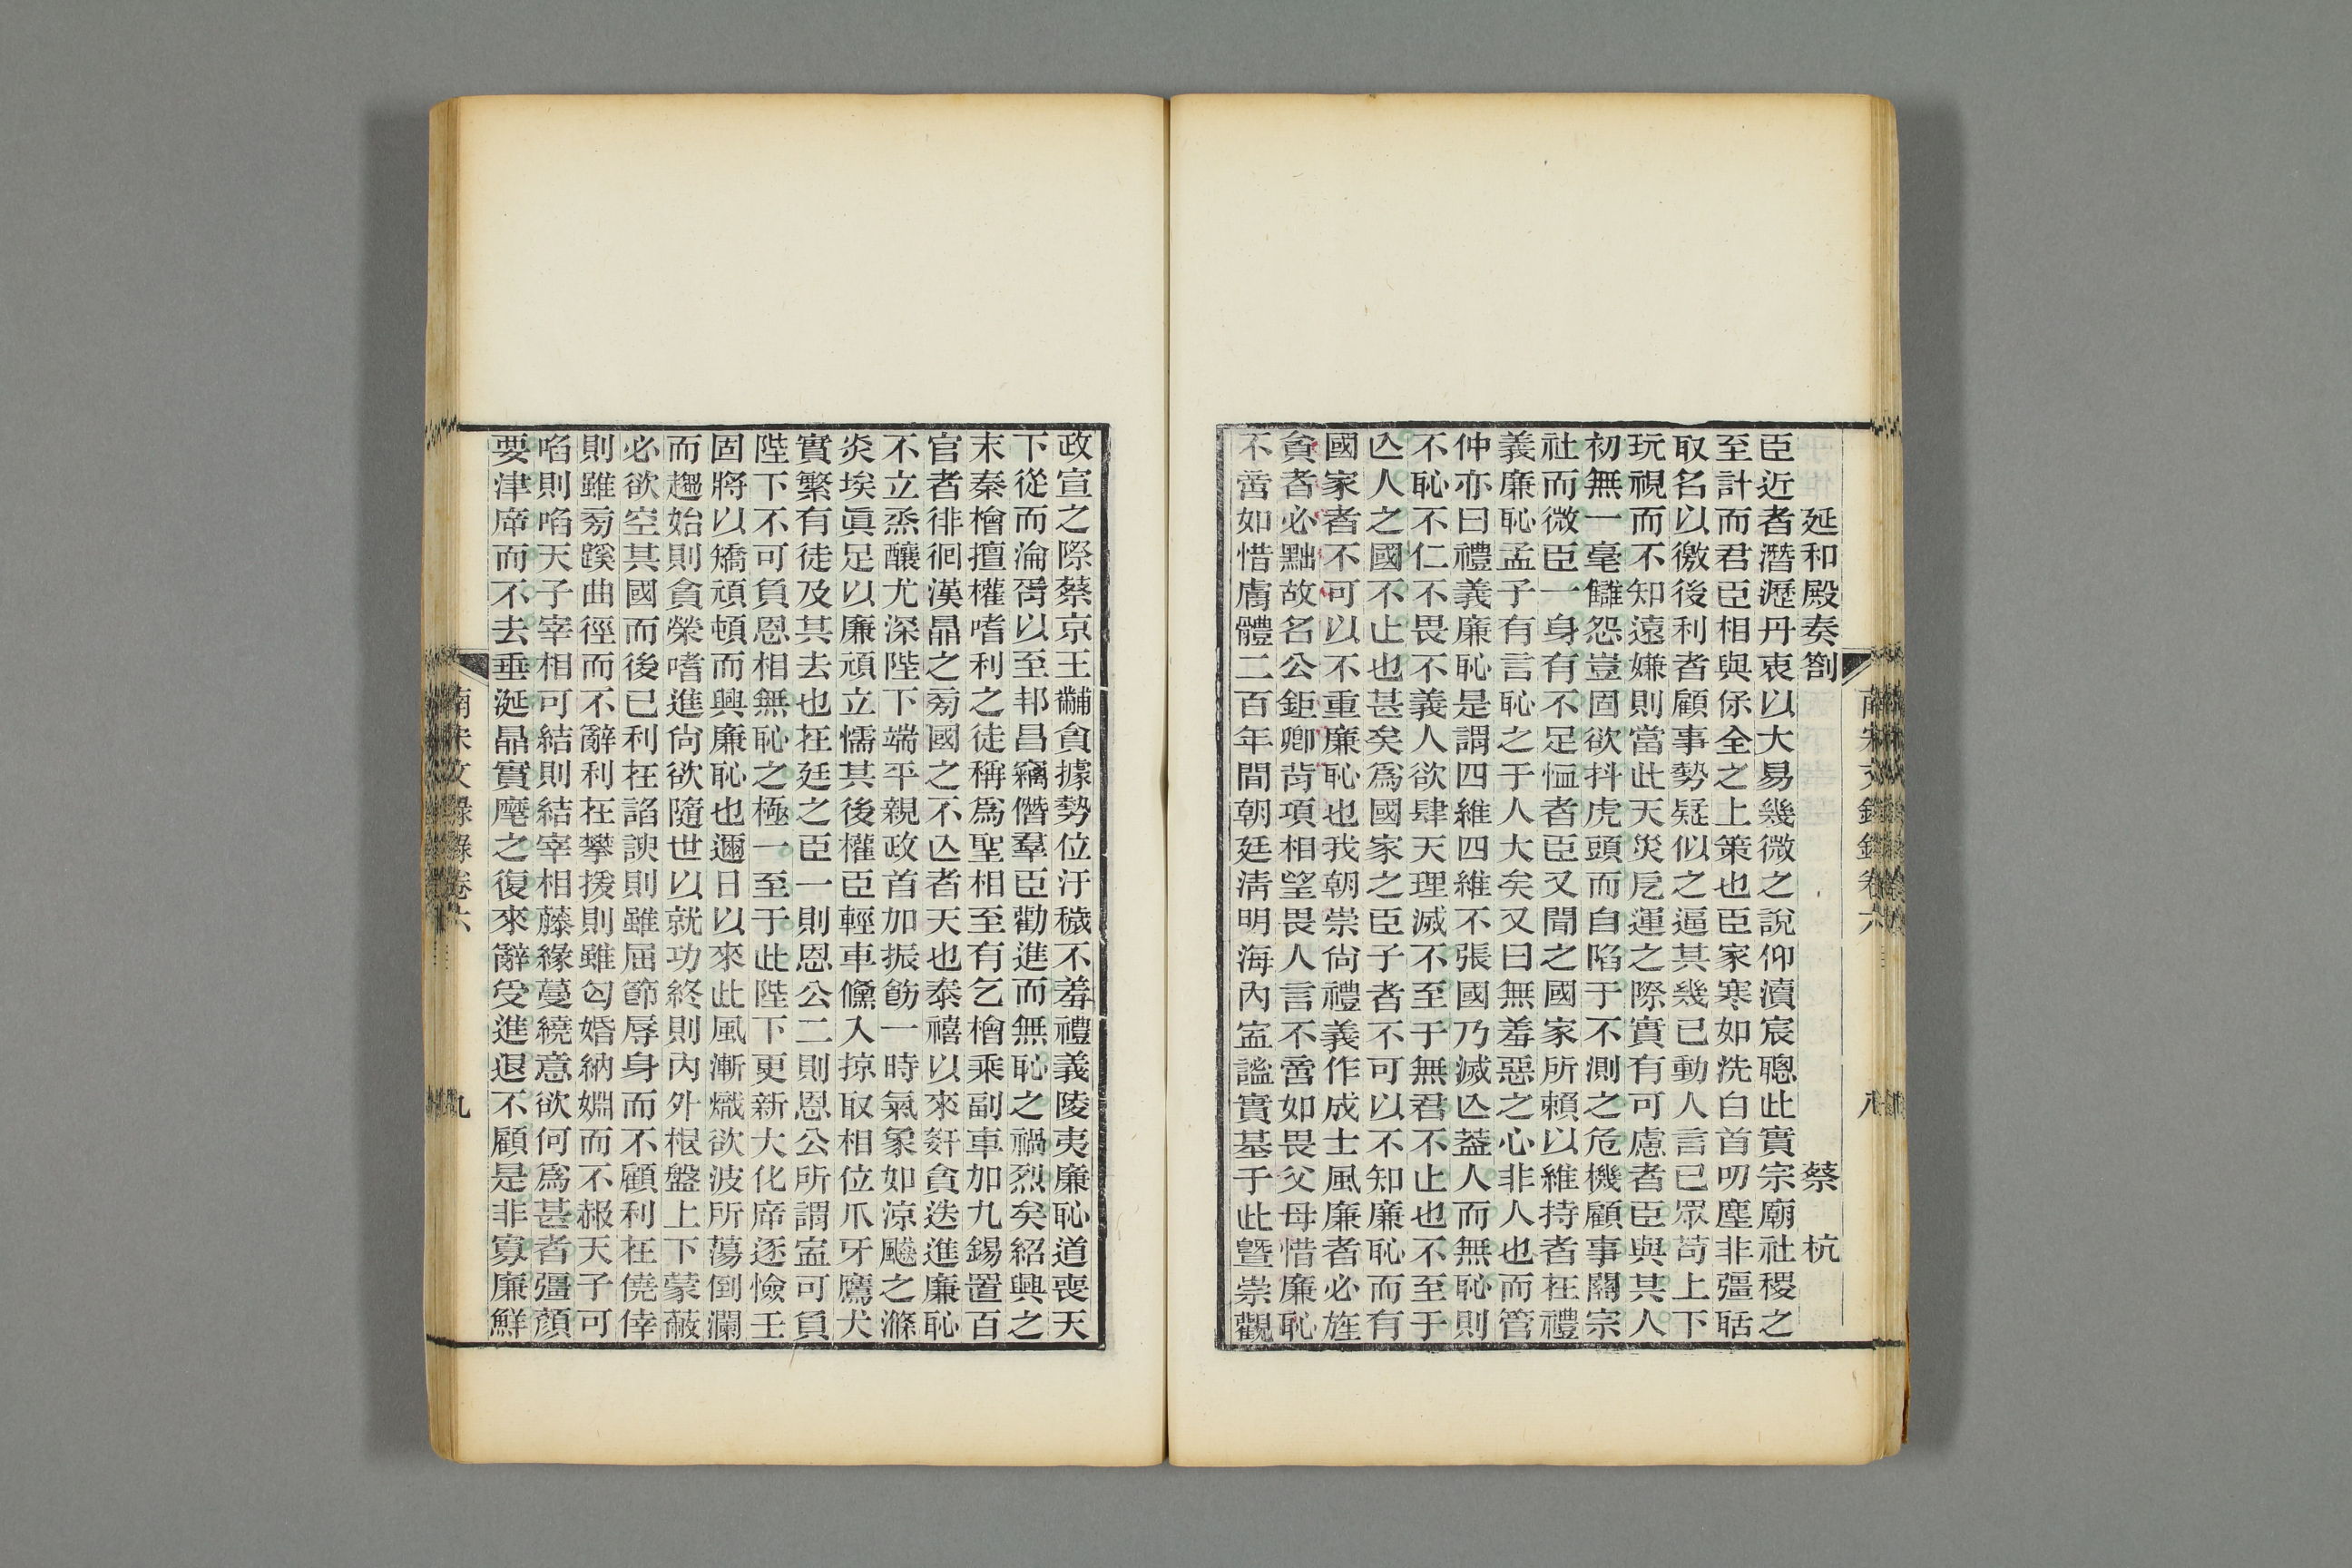 延和殿奏劄 蔡 杭
臣近者潛瀝丹衷以大易幾微之說仰瀆宸聰此實宗廟社稷之
至計而君臣相與保全之上策也臣家寒如洗白首叨塵非彊聒
取名以徼後利者顧事勢疑似之逼其幾已動人言已眾苟上下
玩視而不知遠嫌則當此天災戹運之際實有可慮者臣與其人
初無一毫讎怨豈固欲抖虎頭而自陷于不測之危機顧事關宗
社而微臣一身有不足恤者臣又聞之國家所賴以維持者在禮
義廉恥孟子有言恥之于人大矣又曰無羞惡之心非人也而管
仲亦曰禮義廉恥是謂四維四維不張國乃滅亾葢人而無恥則
不恥不仁不畏不義人欲肆天理滅不至于無君不止也不至于
亾人之國不止也甚矣為國家之臣子者不可以不知廉恥而有
國家者不可以不重廉恥也我朝崇尙禮義作成士風廉者必旌
貪者必黜故名公鉅卿背項相望畏人言不啻如畏父母惜廉恥
不啻如惜膚體二百年間朝廷淸明海內寍謐實基于此曁崇觀
政宣之際蔡京王黼貪據勢位汙穢不羞禮義陵夷廉恥道喪天
下從而淪胥以至邦昌竊僭羣臣勸進而無恥之禍烈矣紹興之
末秦檜擅權嗜利之徒稱為聖相至有乞檜乘副車加九錫置百
官者徘徊漢鼎之㫄國之不亾者天也泰禧以來姧貪迭進廉恥
不立烝釀尤深陛下端平親政首加振飭一時氣象如涼飈之滌
炎埃眞足以廉頑立懦其後權臣輕車儵入掠取相位爪牙鷹犬
實繁有徒及其去也在廷之臣一則恩公二則恩公所謂寍可負
陛下不可負恩相無恥之極一至于此陛下更新大化席逐憸壬
固將以矯頑頓而興廉恥也邇日以來此風漸熾欲波所蕩倒瀾
而趨始則貪榮嗜進尙欲隨世以就功終則內外根盤上下蒙蔽
必欲空其國而後已利在諂諛則雖屈節辱身而不顧利在僥倖
則雖㫄蹊曲徑而不辭利在攀援則雖匃婚納婣而不赧天子可
啗則啗天子宰相可結則結宰相藤緣蔓繞意欲何為甚者彊顏
要津席而不去垂涎鼎實麾之復來辭受進退不顧是非寡廉鮮
南宋文錄錄卷六 八
南宋文錄錄卷六 九